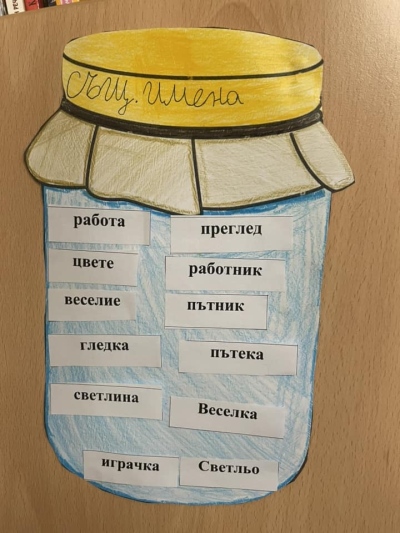 Същ. имена
работа
преглед
цвете
работник
веселие
пътник
гледка
пътека
светлина
Веселка
играчка
Светльо